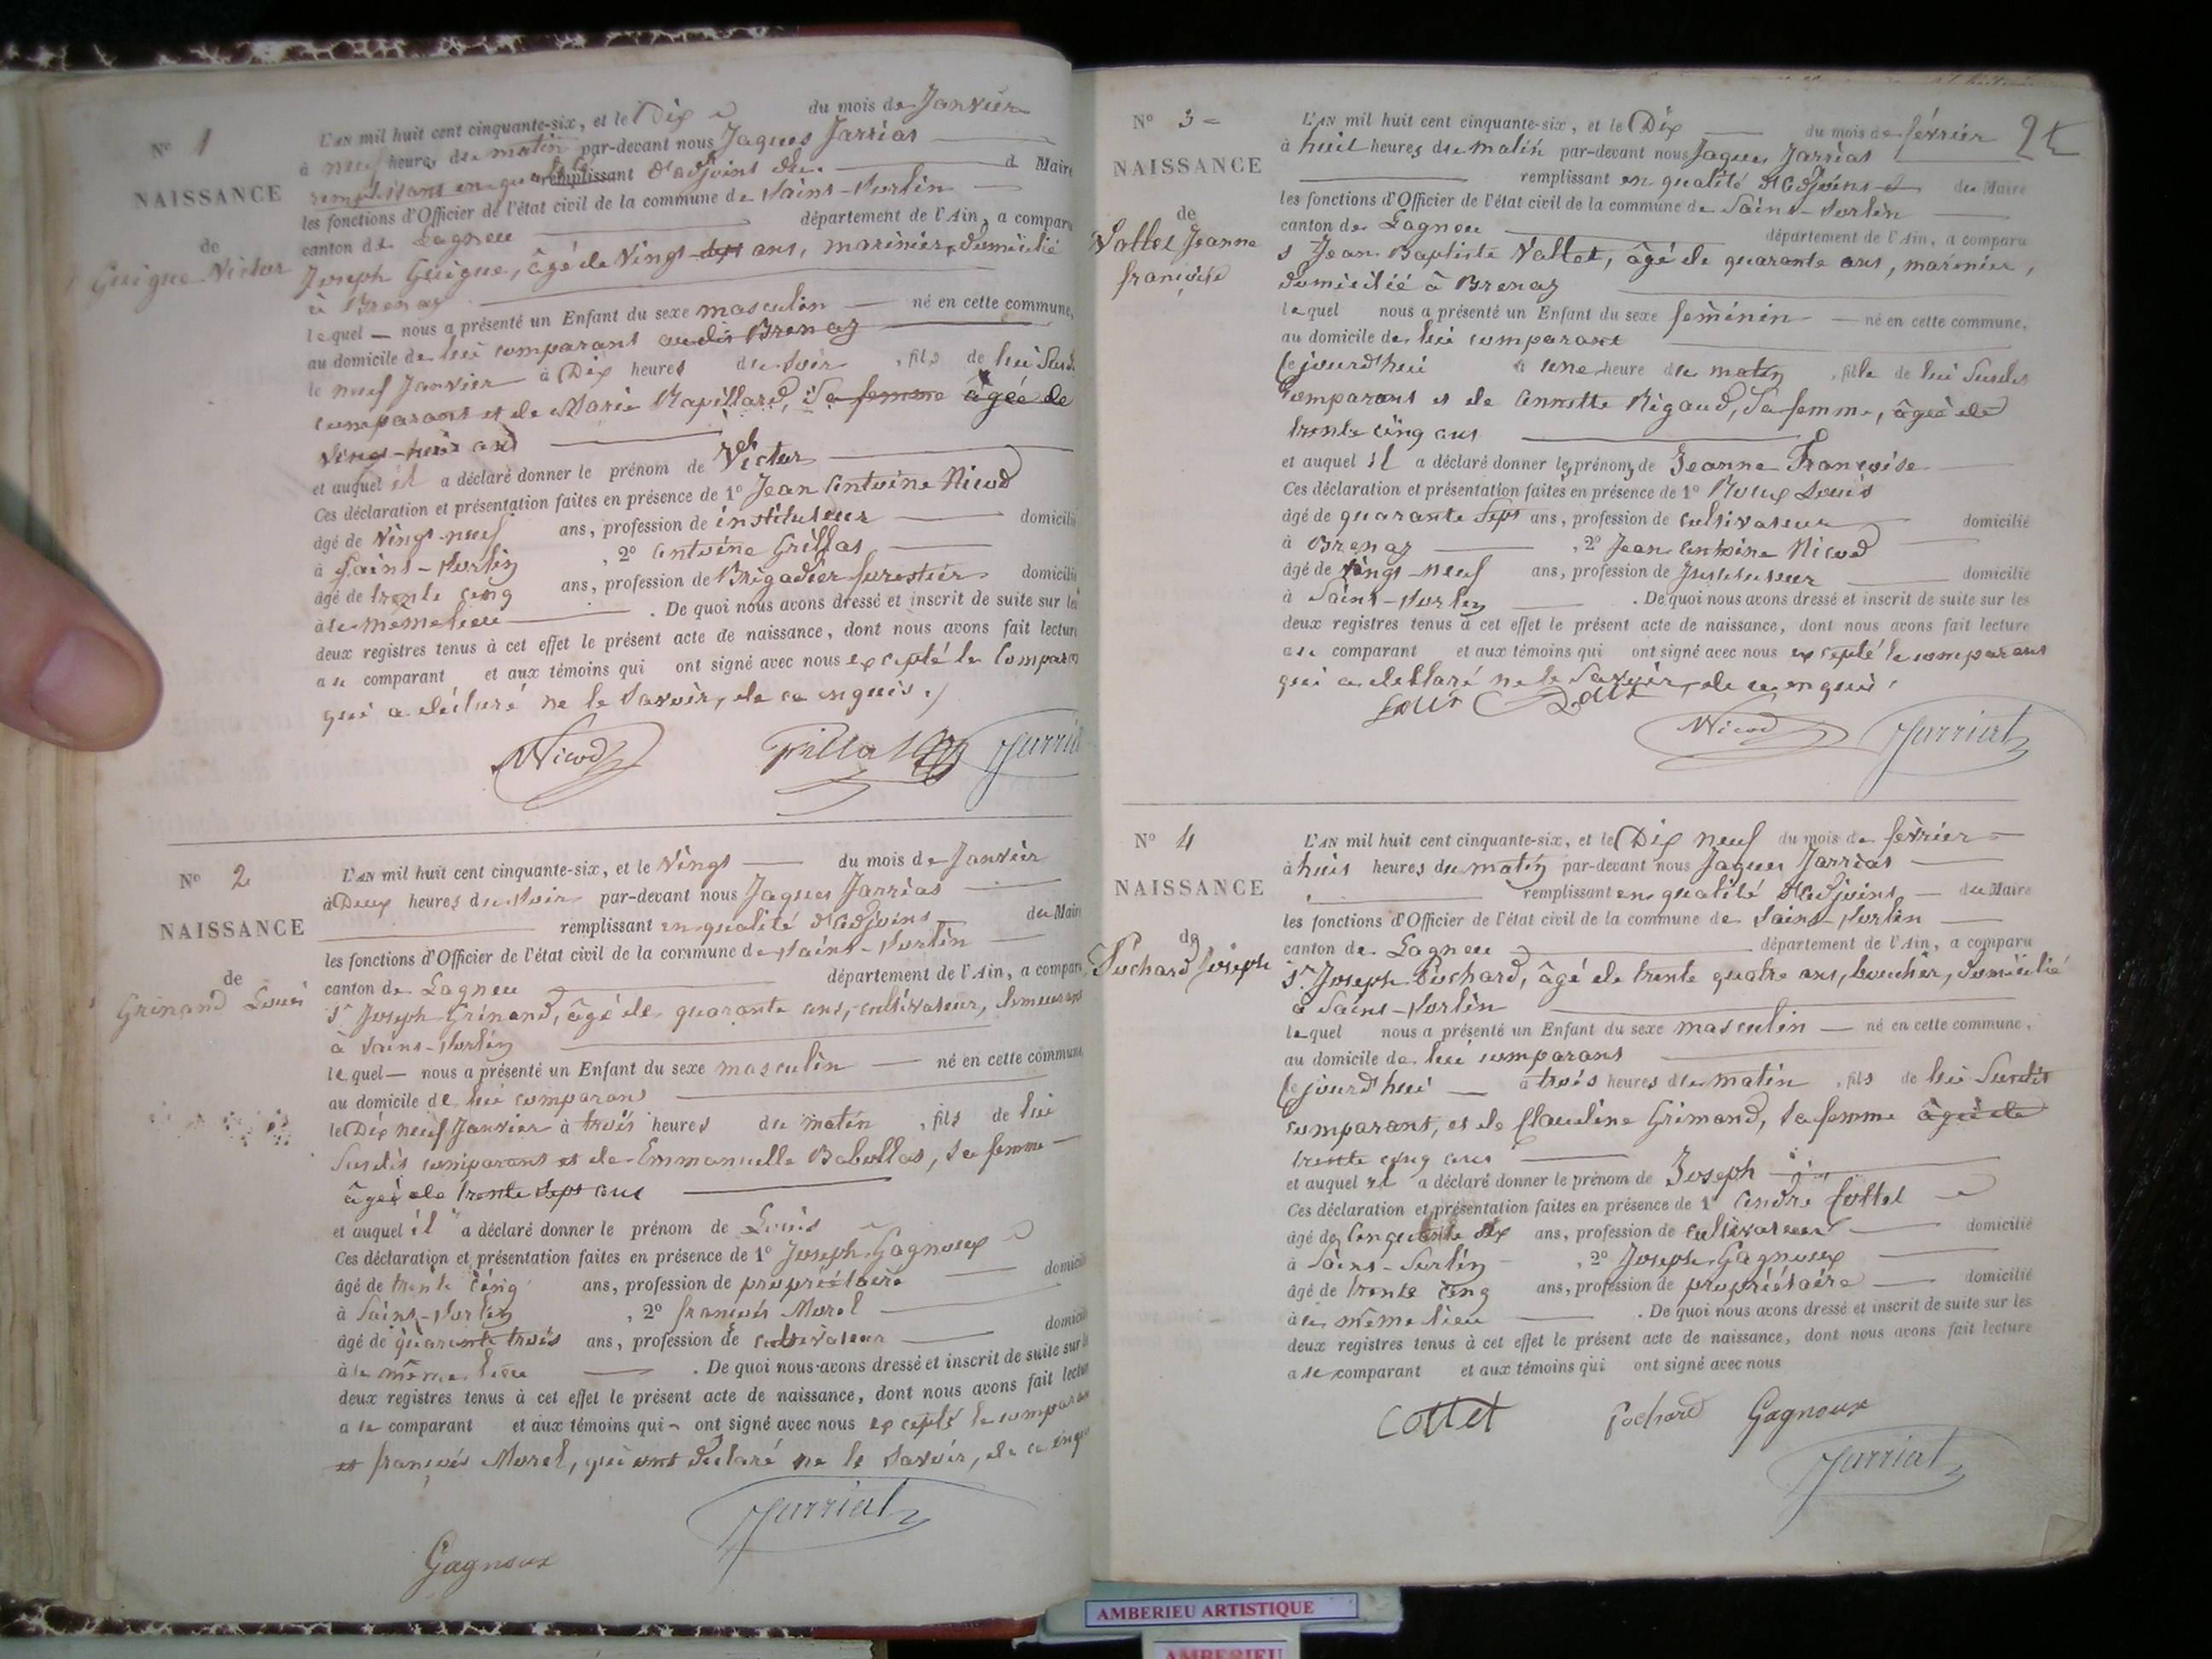 N° 1
NAISSANCE
de
Guigue Victor
L'AN mil huit cent cinquante-six, et le Dix du mois de Janvier
à neuf heures du matin par-devant nous Jaques Jarriat
remplissant en qualité remplissant d'adjoint du d Maire
les fonctions d'Officier de l'état civil de la commune de Saint-Sorlin
canton de Lagneu département de l'Ain, a comparu
Joseph Guigue, âgé de Vingt-sept ans, marinier, domicilié
à Brenaz
lequel nous a présenté un Enfant du sexe masculin né en cette commune,
au domicile de lui comparant audit Brenaz
le neuf Janvier à Dix heures du soir, fils de lui Susdit
comparant et de Marie Rapillard, sa femme âgée de
Vingt-huit ans
et auquel il a déclaré donner le prénom de Victor
Ces déclaration et présentation faites en présence de 1° Jean Antoine Nicod
âgé de Vingt-neuf ans, profession de instituteur domicilié
à Saint-Sorlin, 2° Antoine Grillat
âgé de trente cinq ans, profession de Brigadier forestier domicilié
à le même lieu. De quoi nous avons dressé et inscrit de suite sur les
deux registres tenus à cet effet le présent acte de naissance, dont nous avons fait lecture
au comparant et aux témoins qui ont signé avec nous excepté le comparant
qui a déclaré ne le savoir, de ce enquis.
Nicod Grillat Jarriat
N° 2
NAISSANCE
de
Grinand Louis
L'AN mil huit cent cinquante-six, et le Vingt du mois de Janvier
à Deux heures du soir par-devant nous Jaques Jarriat
remplissant en qualité d'Adjoint du Maire
les fonctions d'Officier de l'état civil de la commune de Saint-Sorlin
canton de Lagneu département de l'Ain, a comparu
Sr Joseph Grinand, âgé de quarante ans, cultivateur, demeurant
à Saint-Sorlin
lequel nous a présenté un Enfant du sexe masculin né en cette commune,
au domicile de lui comparant
le Dix neuf Janvier à trois heures du matin, fils de lui
Susdit comparant et de Emmanuelle Babollat, sa femme
âgée de trente sept ans
et auquel il a déclaré donner le prénom de Louis
Ces déclaration et présentation faites en présence de 1° Joseph Gagnoux
âgé de trente cinq ans, profession de propriétaire domicilié
à Saint-Sorlin, 2° françois Morel
âgé de quarante trois ans, profession de cultivateur domicilié
à le même lieu. De quoi nous avons dressé et inscrit de suite sur les
deux registres tenus à cet effet le présent acte de naissance, dont nous avons fait lecture
a le comparant et aux témoins qui ont signé avec nous excepté le comparant
et françois Morel, qui ont déclaré ne le savoir, de ce enquis
Jarriat
Gagnoux
2
N° 3
NAISSANCE
de
Vallet Jeanne
françoise
L'AN mil huit cent cinquante-six, et le Dix du mois de février
à huit heures du matin par-devant nous Jaques Jarriat
remplissant en qualité d'Adjoint du Maire
les fonctions d'Officier de l'état civil de la commune de Saint-Sorlin
canton de Lagneu département de l'Ain, a comparu
s Jean Baptiste Vallet, âgé de quarante ans, marinier,
domicilié à Brenaz
lequel nous a présenté un Enfant du sexe féminin né en cette commune,
au domicile de lui comparant
Cejourd'hui à une heure du matin, fille de lui Susdit
Comparant et de Annette Rigaud, sa femme, âgée de
trente cinq ans
et auquel il a déclaré donner les prénoms de Jeanne Françoise
Ces déclaration et présentation faites en présence de 1° Roux Louis
âgé de quarante sept ans, profession de cultivateur domicilié
à Brenaz, 2° Jean Antoine Nicod
âgé de Vingt-neuf ans, profession de Instituteur domicilié
à Saint-Sorlin. De quoi nous avons dressé et inscrit de suite sur les
deux registres tenus à cet effet le présent acte de naissance, dont nous avons fait lecture
au comparant et aux témoins qui ont signé avec nous excepté le comparant
qui a déclaré ne le Savoir, de ce enquis.
Nicod Jarriat
N° 4
NAISSANCE
de
Pochard Joseph
L'AN mil huit cent cinquante-six, et le Dix neuf du mois de février
à huit heures du matin par-devant nous Jaques Jarriat
remplissant en qualité d'Adjoint du Maire
les fonctions d'Officier de l'état civil de la commune de Saint-Sorlin
canton de Lagneu département de l'Ain, a comparu
Sr Joseph Pochard, âgé de trente quatre ans, boucher, domicilié
à Saint-Sorlin
lequel nous a présenté un Enfant du sexe masculin né en cette commune,
au domicile de lui comparant
Cejourd'hui à trois heures du matin, fils de lui Susdit
comparant, et de Claudine Grimand, sa femme âgée de
trente cinq ans
et auquel il a déclaré donner le prénom de Joseph
Ces déclaration et présentation faites en présence de 1° André Cottet
âgé de Cinquante dix ans, profession de cultivateur domicilié
à Saint-Sorlin, 2° Joseph Gagnoux
âgé de trente cinq ans, profession de propriétaire domicilié
à le même lieu. De quoi nous avons dressé et inscrit de suite sur les
deux registres tenus à cet effet le présent acte de naissance, dont nous avons fait lecture
a le comparant et aux témoins qui ont signé avec nous
Cottet Pochard Gagnoux
Jarriat
AMBERIEU ARTISTIQUE
AMBERIEU